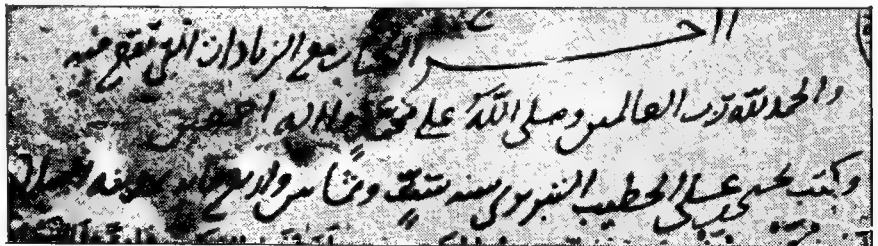 آخر الكتاب مع الزيادات التي تقع فيه
والحمد لله رب العالمين وصلى الله على محمد واله اجمعين
وكتب يحيى بن على الخطيب التبريزى سنه ست وثمانين واربع مائه